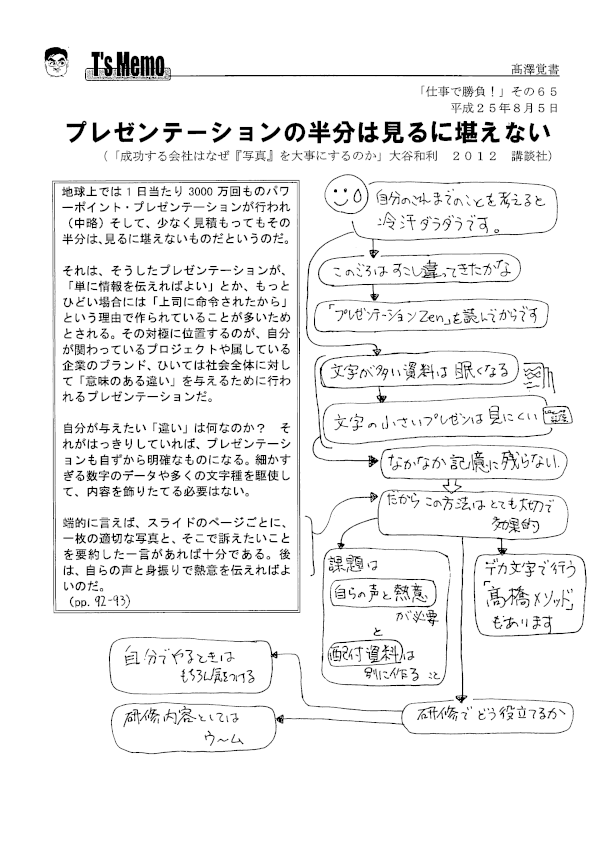 T's Memo
髙澤覚書
「仕事で勝負！」その６５
平成２５年８月５日
プレゼンテーションの半分は見るに堪えない
（「成功する会社はなぜ『写真』を大事にするのか」大谷和利　２０１２　講談社）
地球上では 1 日当たり 3000 万回ものパワ
ーポイント・プレゼンテーションが行われ
（中略）そして、少なく見積もってもその
半分は、見るに堪えないものだというのだ。
それは、そうしたプレゼンテーションが、
「単に情報を伝えればよい」とか、もっと
ひどい場合には「上司に命令されたから」
という理由で作られていることが多いため
とされる。その対極に位置するのが、自分
が関わっているプロジェクトや属している
企業のブランド、ひいては社会全体に対し
て「意味のある違い」を与えるために行わ
れるプレゼンテーションだ。
自分が与えたい「違い」は何なのか？　そ
れがはっきりしていれば、プレゼンテーシ
ョンも自ずから明確なものになる。細かす
ぎる数字のデータや多くの文字種を駆使し
て、内容を飾りたてる必要はない。
端的に言えば、スライドのページごとに、
一枚の適切な写真と、そこで訴えたいこと
を要約した一言があれば十分である。後
は、自らの声と身振りで熱意を伝えればよ
いのだ。
（pp. 92-93）
自分のこれまでのことを考えると
冷汗ダラダラです。
このごろはすこし違ってきたかな
「プレゼンテーションZen」を読んでからです
文字が多い資料は 眠くなる
文字の小さいプレゼンは見にくい
なかなか記憶に残らない
だから この方法はとても大切で
効果的
課題は
自らの声と熱意
が必要
と
配付資料は
別に作る こと
デカ文字で行う
「髙橋メソッド」
もあります
自分でやるときは
もちろん気をつける
研修内容としては
ウ〜ム
研修でどう役立てるか